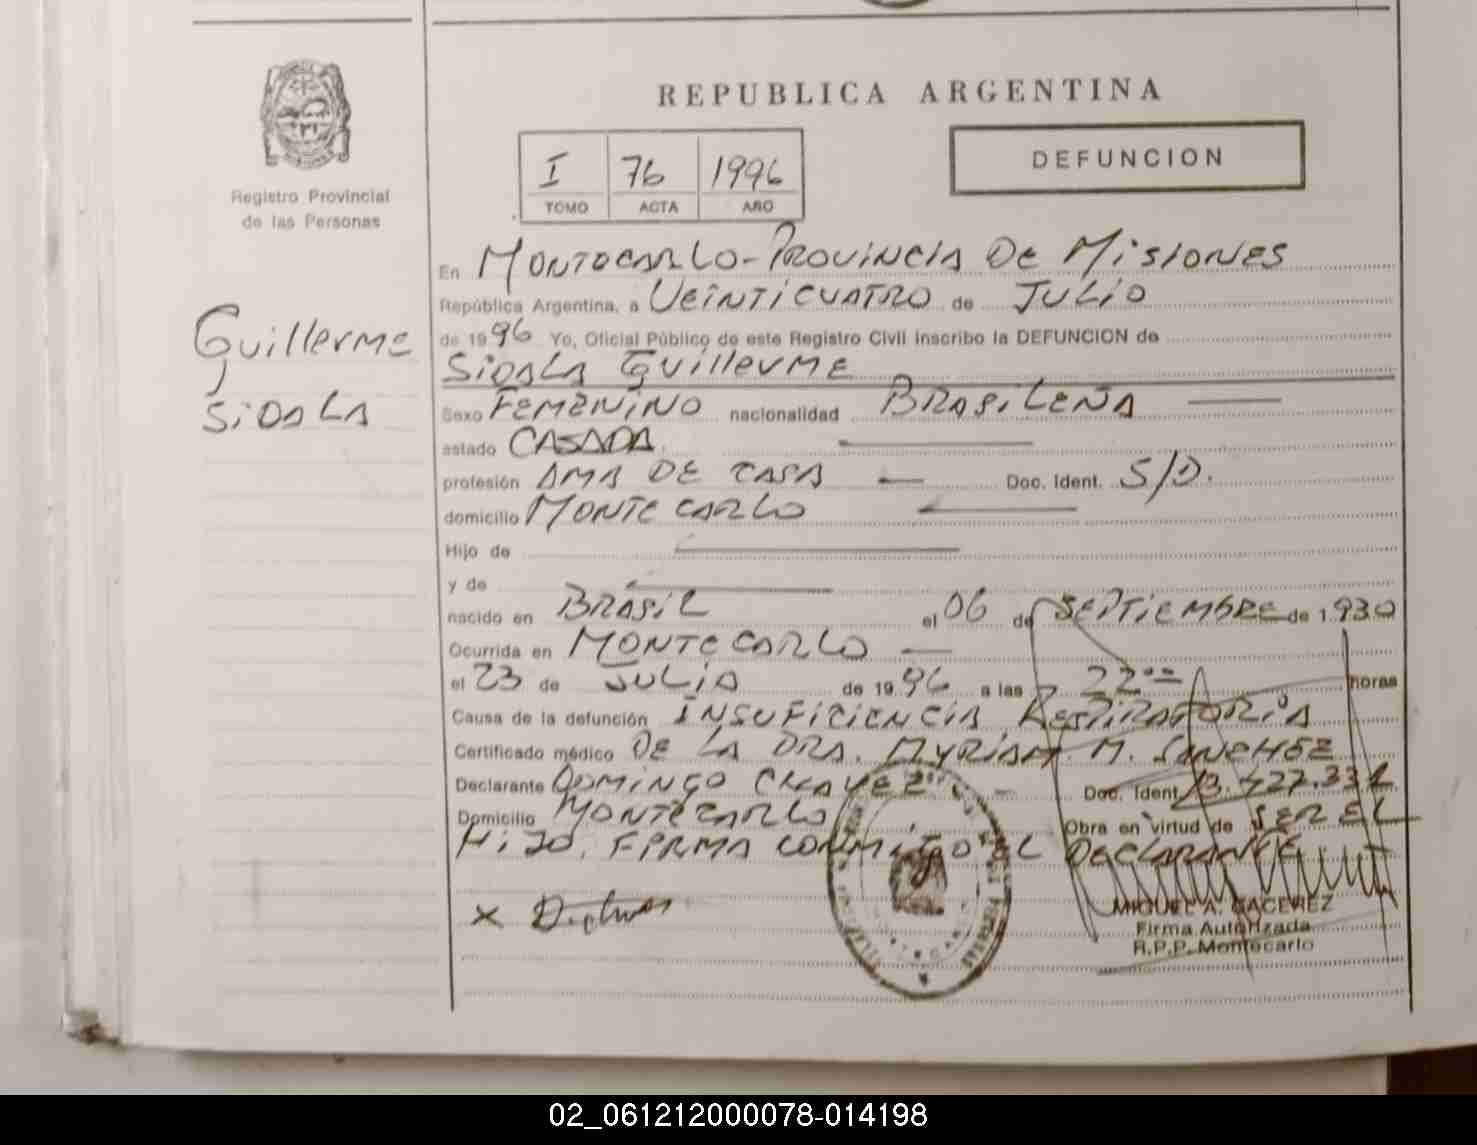 REPUBLICA ARGENTINA
I 76 1996
TOMO ACTA AÑO
DEFUNCION
Registro Provincial
de las Personas
Guillerme
SiDALA
En MONTECARLO - PROVINCIA DE MISIONES
República Argentina, a VEINTICUATRO de JULIO
de 1996 Yo, Oficial Público de este Registro Civil inscribo la DEFUNCION de
SiDALA GUillerME
Sexo FEMENINO nacionalidad BRASILEÑA
estado CASADA
profesión AMA DE CASA Doc. Ident. S/D.
domicilio MONTE CARLO
Hijo de
y de
nacido en BRASIL el 06 de SEPTIEMBRE de 1.930
Ocurrida en MONTECARLO
el 23 de JULIO de 1996 a las 22 horas
Causa de la defunción INSUFICIENCIA RESPIRATORIA
Certificado médico DE LA DRA. MYRIAM M. SANCHEZ
Declarante DOMINGO CHAVEZ Doc. Ident. 13.427.331
Domicilio MONTECARLO Obra en virtud de SER EL
HIJO. FIRMA CONMIGO EL DECLARANTE
X
MIGUEL A. CACEREZ
Firma Autorizada
R.P.P. Montecarlo
02_061212000078-014198